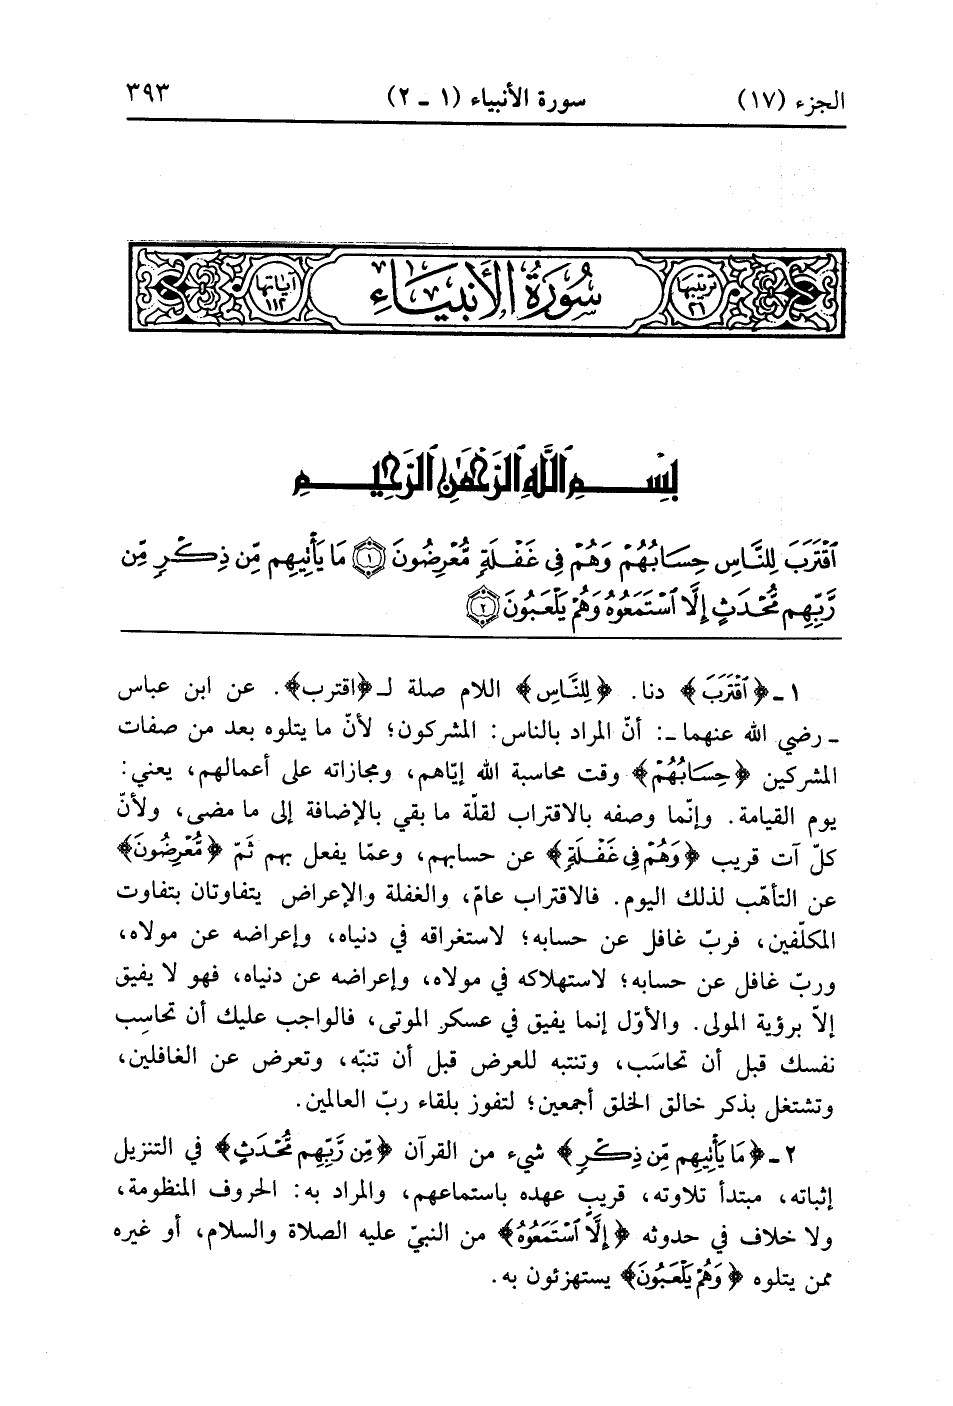 الجزء (١٧) سورة الأنبياء (١ ـ ٢) ٣٩٣
ترتيبها ٢١ سُورَةُ الأَنْبِيَاءِ آياتها ١١٢
بِسْمِ ٱللَّهِ ٱلرَّحْمَٰنِ ٱلرَّحِيمِ
ٱقْتَرَبَ لِلنَّاسِ حِسَابُهُمْ وَهُمْ فِى غَفْلَةٍ مُّعْرِضُونَ ١ مَا يَأْتِيهِم مِّن ذِكْرٍ مِّن
رَّبِّهِم مُّحْدَثٍ إِلَّا ٱسْتَمَعُوهُ وَهُمْ يَلْعَبُونَ ٢
١ ـ ﴿ٱقْتَرَبَ﴾ دنا. ﴿لِلنَّاسِ﴾ اللام صلة لـ﴿اقترب﴾. عن ابن عباس
ـ رضي الله عنهما ـ: أنّ المراد بالناس: المشركون؛ لأنّ ما يتلوه بعد من صفات
المشركين ﴿حِسَابُهُمْ﴾ وقت محاسبة الله إيّاهم، ومجازاته على أعمالهم، يعني:
يوم القيامة. وإنّما وصفه بالاقتراب لقلّة ما بقي بالإضافة إلى ما مضى، ولأنّ
كلّ آت قريب ﴿وَهُمْ فِى غَفْلَةٍ﴾ عن حسابهم، وعمّا يفعل بهم ثَمّ ﴿مُّعْرِضُونَ﴾
عن التأهّب لذلك اليوم. فالاقتراب عامّ، والغفلة والإعراض يتفاوتان بتفاوت
المكلّفين، فربّ غافل عن حسابه؛ لاستغراقه في دنياه، وإعراضه عن مولاه،
وربّ غافل عن حسابه؛ لاستهلاكه في مولاه، وإعراضه عن دنياه، فهو لا يفيق
إلاّ برؤية المولى. والأوّل إنما يفيق في عسكر الموتى، فالواجب عليك أن تحاسِب
نفسك قبل أن تحاسَب، وتنتبه للعرض قبل أن تنبّه، وتعرض عن الغافلين،
وتشتغل بذكر خالق الخلق أجمعين؛ لتفوز بلقاء ربّ العالمين.
٢ ـ ﴿مَا يَأْتِيهِم مِّن ذِكْرٍ﴾ شيء من القرآن ﴿مِّن رَّبِّهِم مُّحْدَثٍ﴾ في التنزيل
إثباته، مبتدأ تلاوته، قريبٍ عهده باستماعهم، والمراد به: الحروف المنظومة،
ولا خلاف في حدوثه ﴿إِلَّا ٱسْتَمَعُوهُ﴾ من النبيّ عليه الصلاة والسلام، أو غيره
ممن يتلوه ﴿وَهُمْ يَلْعَبُونَ﴾ يستهزئون به.